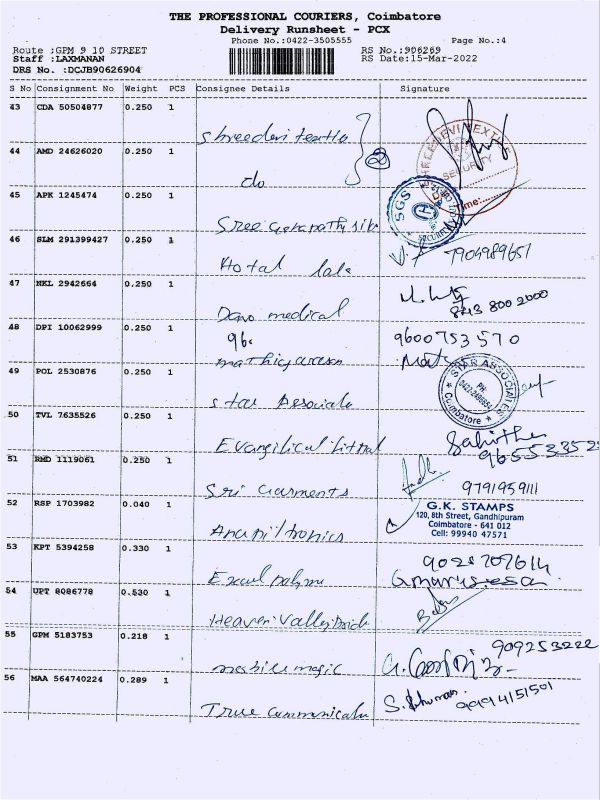 THE PROFESSIONAL COURIERS, Coimbatore
Delivery Runsheet - PCX
Phone No.:0422-3505555 Page No.:4
Route :GPM 9 10 STREET RS No.:906269
Staff :LAXMANAN RS Date:15-Mar-2022
DRS No. :DCJB90626904
S No Consignment No Weight PCS Consignee Details Signature
43 CDA 50504877 0.250 1
Shreedevi textile
44 AMD 24626020 0.250 1
do 2
SHREEDEVI TEXTILE
SECURITY
Time:
45 APK 1245474 0.250 1
SGS
Sree
46 SLM 291399427 0.250 1
Hotal lala 7904989651
47 NKL 2942664 0.250 1
medical 8713 800 2000
48 DPI 10062999 0.250 1
96 9600753570
49 POL 2530876 0.250 1
STAR ASSOCIATES
Coimbatore
PH
Star
50 TVL 7635526 0.250 1
Evangilical
51 RMD 1119061 0.250 1
Sri Garments 9791959111
52 RSP 1703982 0.040 1
G.K. STAMPS
120, 8th Street, Gandhipuram
Coimbatore - 641 012
Cell: 99940 47571
53 KPT 5394258 0.330 1
Excel
54 UPT 8086778 0.530 1
Heaven valley
55 GPM 5183753 0.218 1
909253222
mobile magic
56 MAA 564740224 0.289 1
True 9994151501